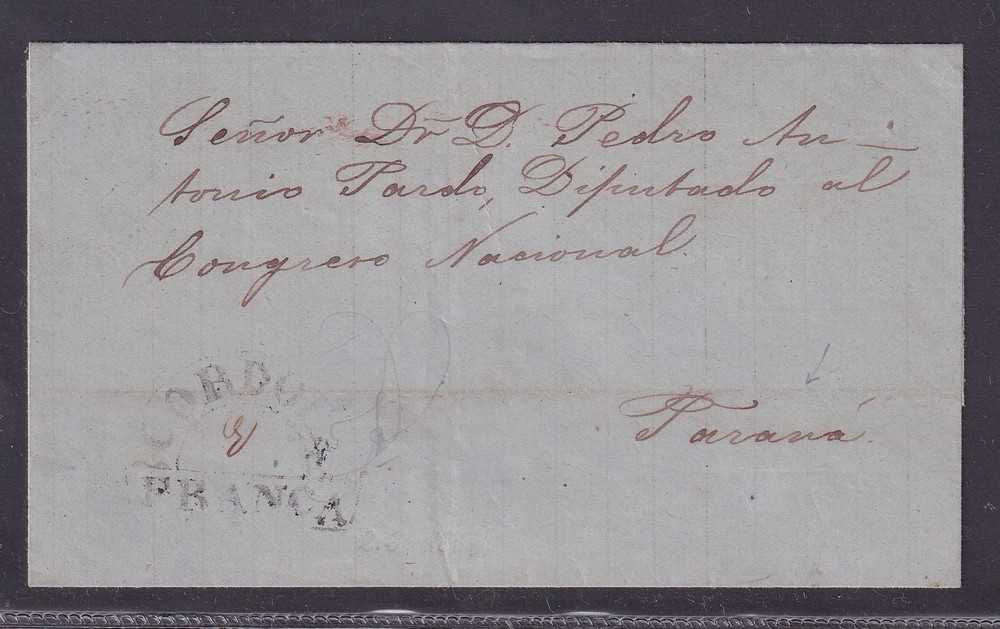 Señor Dr D. Pedro An-
tonio Pardo, Diputado al
Congreso Nacional.
CORDO
FRANCA
Paraná.